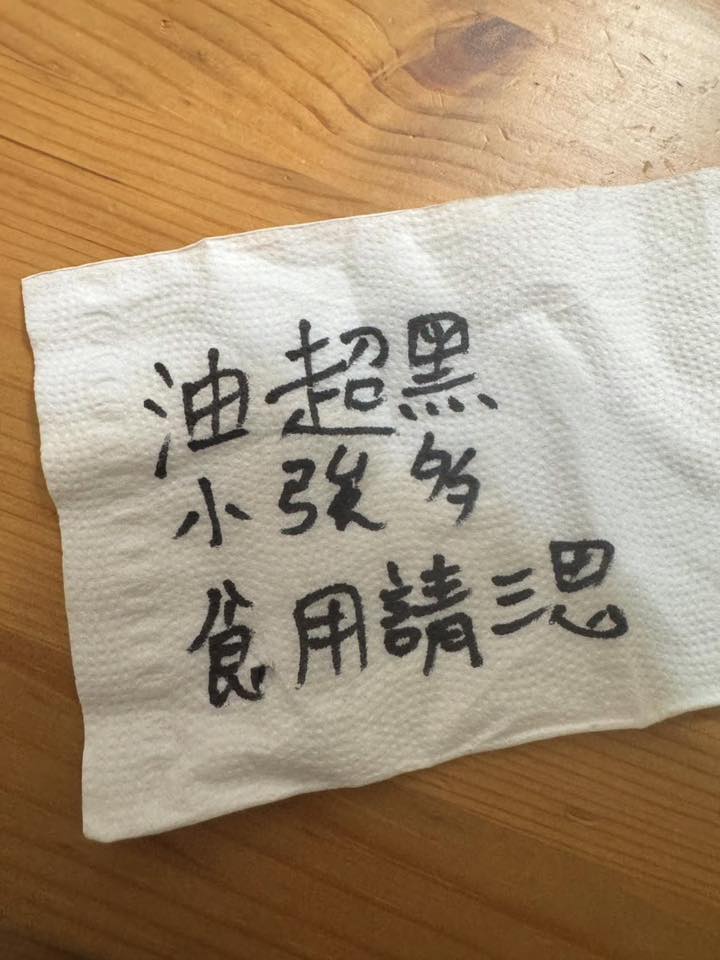 油超黑
小強多
食用請三思